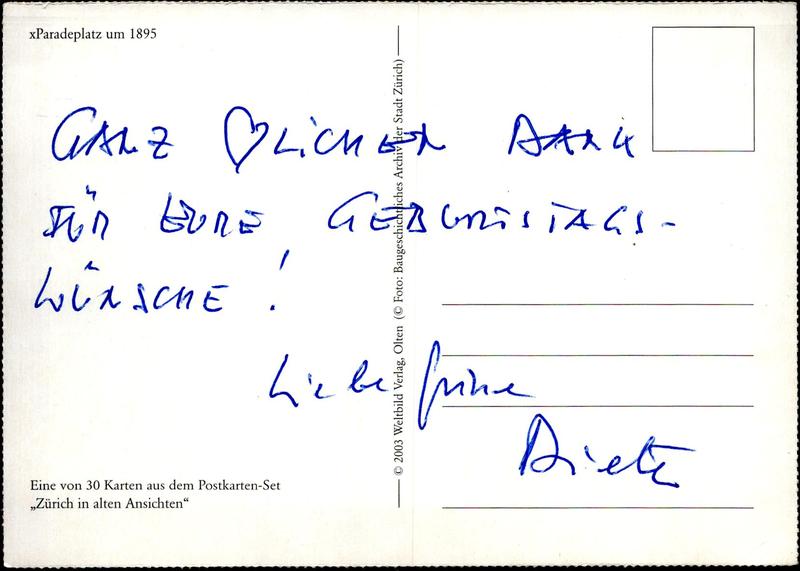 xParadeplatz um 1895
GANZ ♡LICHEN DANK
FÜR EURE GEBURTSTAGS-
WÜNSCHE!
Liebe Grüsse
Dieter
© 2003 Weltbild Verlag, Olten (© Foto: Baugeschichtliches Archiv der Stadt Zürich)
Eine von 30 Karten aus dem Postkarten-Set
„Zürich in alten Ansichten“